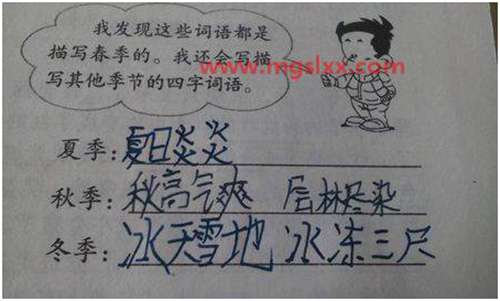 我发现这些词语都是
描写春季的。我还会写描
www.mgslxx.com
写其他季节的四字词语。
夏季：夏日炎炎
秋季：秋高气爽 层林尽染
冬季：冰天雪地 冰冻三尺